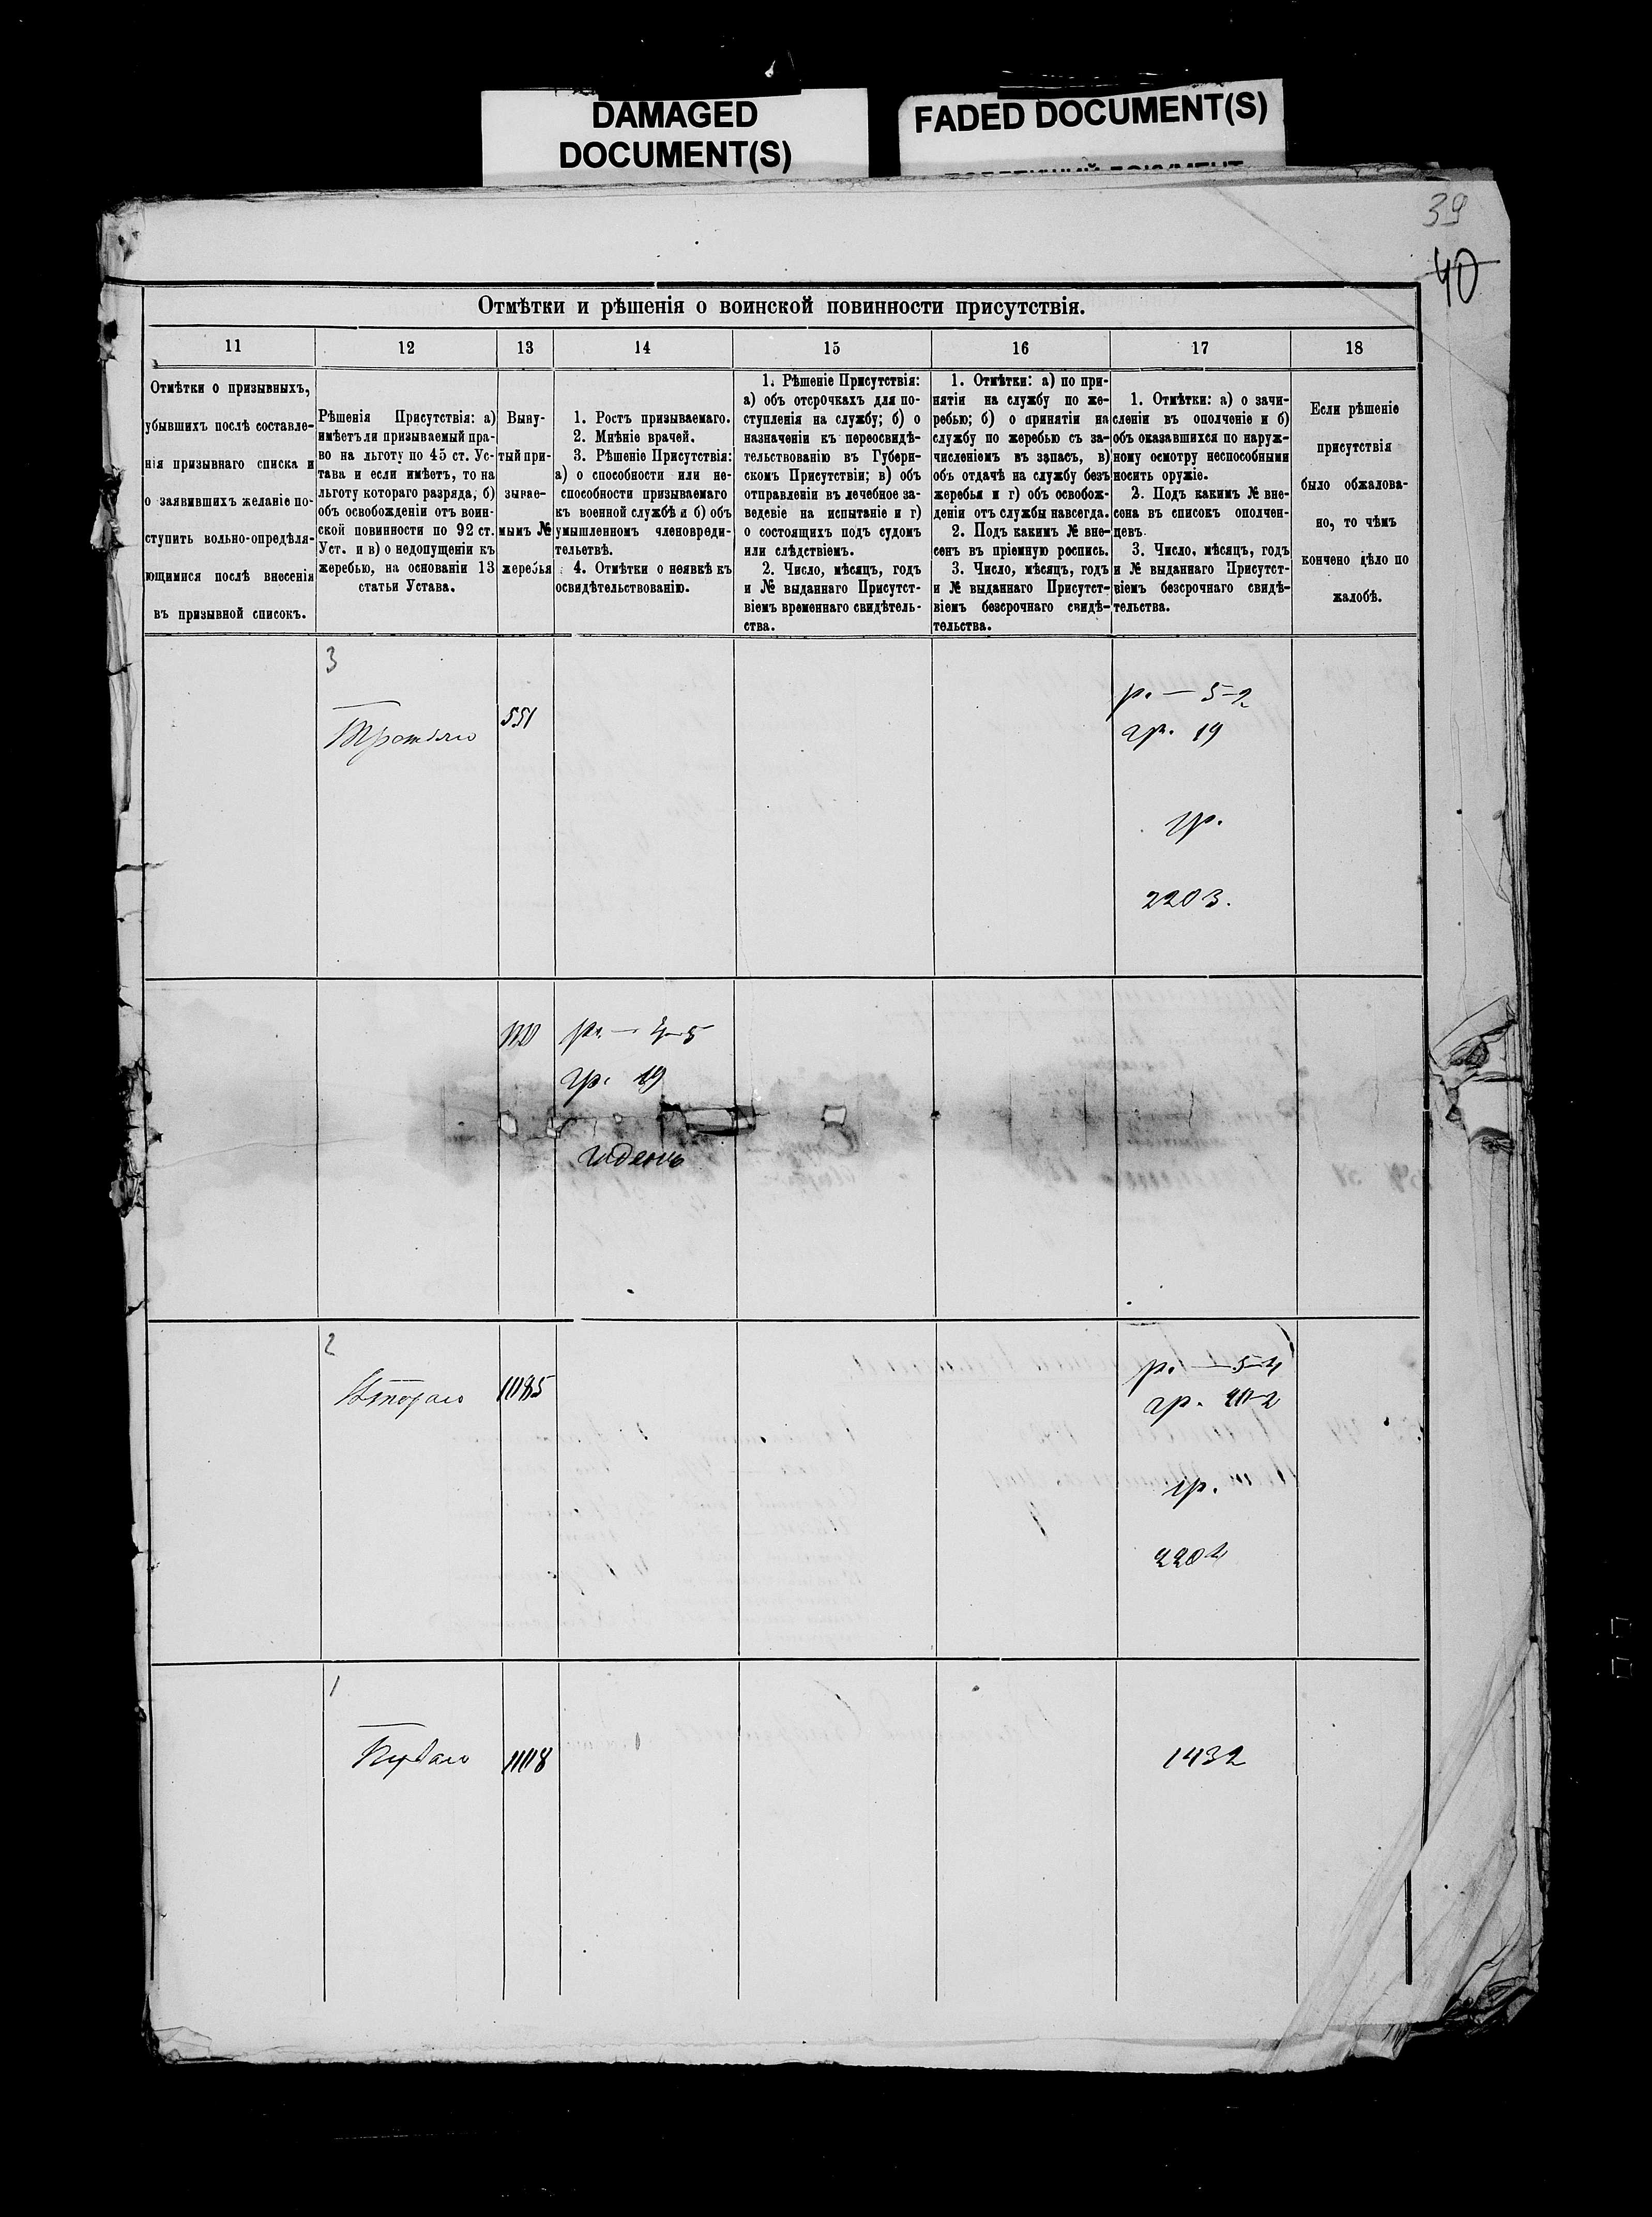 DAMAGED
DOCUMENT(S)
FADED DOCUMENT(S)
39
40
Отмѣтки и рѣшенія о воинской повинности присутствія.
11
12
13
14
15
16
17
18
Отмѣтки о призывныхъ,
убывшихъ послѣ составле-
нія призывнаго списка и
о заявившихъ желаніе по-
ступить вольно-опредѣля-
ющимися послѣ внесенія
въ призывной списокъ.
Рѣшенія Присутствія: а)
имѣетъ ли призываемый пра-
во на льготу по 45 ст. Ус-
тава и если имѣетъ, то на
льготу котораго разряда, б)
объ освобожденіи отъ воин-
ской повинности по 92 ст.
Уст. и в) о недопущеніи къ
жеребью, на основаніи 13
статьи Устава.
Выну-
тый при-
зывае-
мымъ №
жеребья
1. Ростъ призываемаго.
2. Мнѣніе врачей.
3. Рѣшеніе Присутствія:
а) о способности или не-
способности призываемаго
къ военной службѣ и б) объ
умышленномъ членовреди-
тельствѣ.
4. Отмѣтки о неявкѣ къ
освидѣтельствованію.
1. Рѣшеніе Присутствія:
а) объ отсрочкахъ для по-
ступленія на службу; б) о
назначеніи къ переосвидѣ-
тельствованію въ Губерн-
скомъ Присутствіи; в) объ
отправленіи въ лечебное за-
веденіе на испытаніе и г)
о состоящихъ подъ судомъ
или слѣдствіемъ.
2. Число, мѣсяцъ, годъ
и № выданнаго Присутст-
віемъ временнаго свидѣтель-
ства.
1. Отмѣтки: а) по при-
нятіи на службу по же-
ребью; б) о принятіи на
службу по жеребью съ за-
численіемъ въ запасъ, в)
объ отдачѣ на службу безъ
жеребья и г) объ освобож-
деніи отъ службы навсегда.
2. Подъ какимъ № вне-
сенъ въ пріемную роспись.
3. Число, мѣсяцъ, годъ
и № выданнаго Присутст-
віемъ безсрочнаго свидѣ-
тельства.
1. Отмѣтки: а) о зачи-
сленіи въ ополченіе и б)
объ оказавшихся по наруж-
ному осмотру неспособными
носить оружіе.
2. Подъ какимъ № вне-
сена въ списокъ ополчен-
цевъ.
3. Число, мѣсяцъ, годъ
и № выданнаго Присутст-
віемъ безсрочнаго свидѣ-
тельства.
Если рѣшеніе
присутствія
было обжалова-
но, то чѣмъ
кончено дѣло по
жалобѣ.
3
Третьяго
551
р. — 5-2
гр. 19
гр.
2203.
р. — 4-5
гр. 19
годенъ
2
Втораго
1085
р. — 5-4
гр. 20-2
гр.
2204
1
Перваго
1008
1432